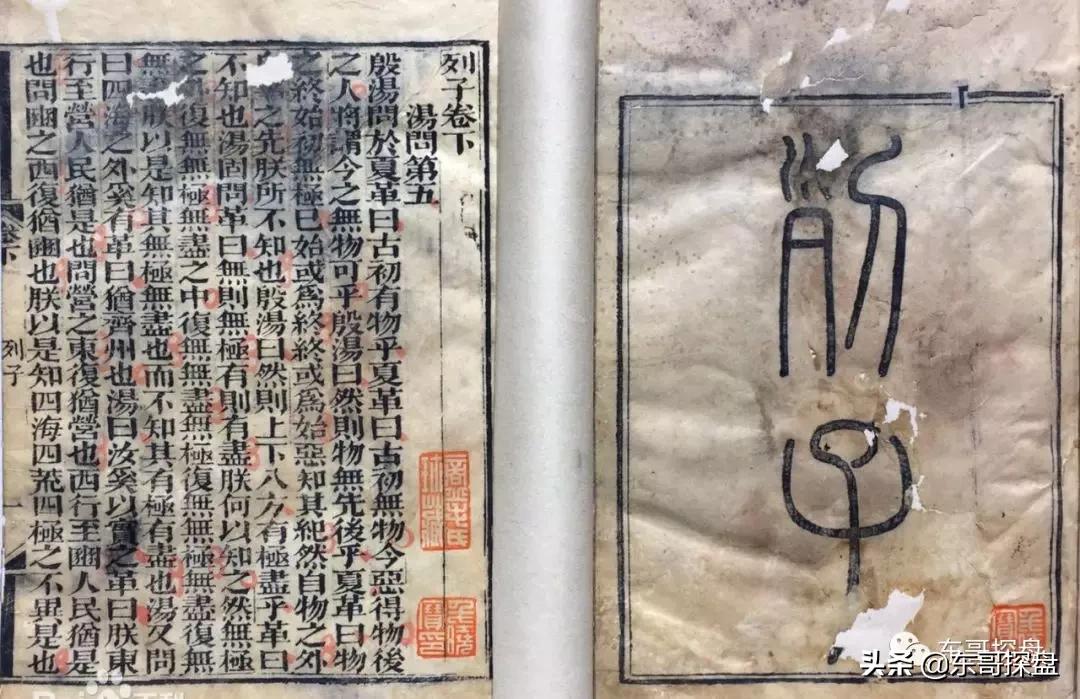 列子
列子卷下
湯問第五
殷湯問於夏革曰古初有物乎夏革曰古初無物今惡得物後
之人將謂今之無物可乎殷湯曰然則物無先後乎夏革曰物
之終始初無極已始或爲終終或爲始惡知其紀然自物之外
之先朕所不知也殷湯曰然則上下八方有極盡乎革曰
不知也湯固問革曰無則無極有則有盡朕何以知之然無極
之外復無無極無盡之中復無無盡無極復無無極無盡復無
無盡朕以是知其無極無盡也而不知其有極有盡也湯又問
曰四海之外奚有革曰猶齊州也湯曰汝奚以實之革曰朕東
行至營人民猶是也問營之東復猶營也西行至豳人民猶是
也問豳之西復猶豳也朕以是知四海四荒四極之不異是也
卷下
列子
一
东哥探盘
头条 @东哥探盘